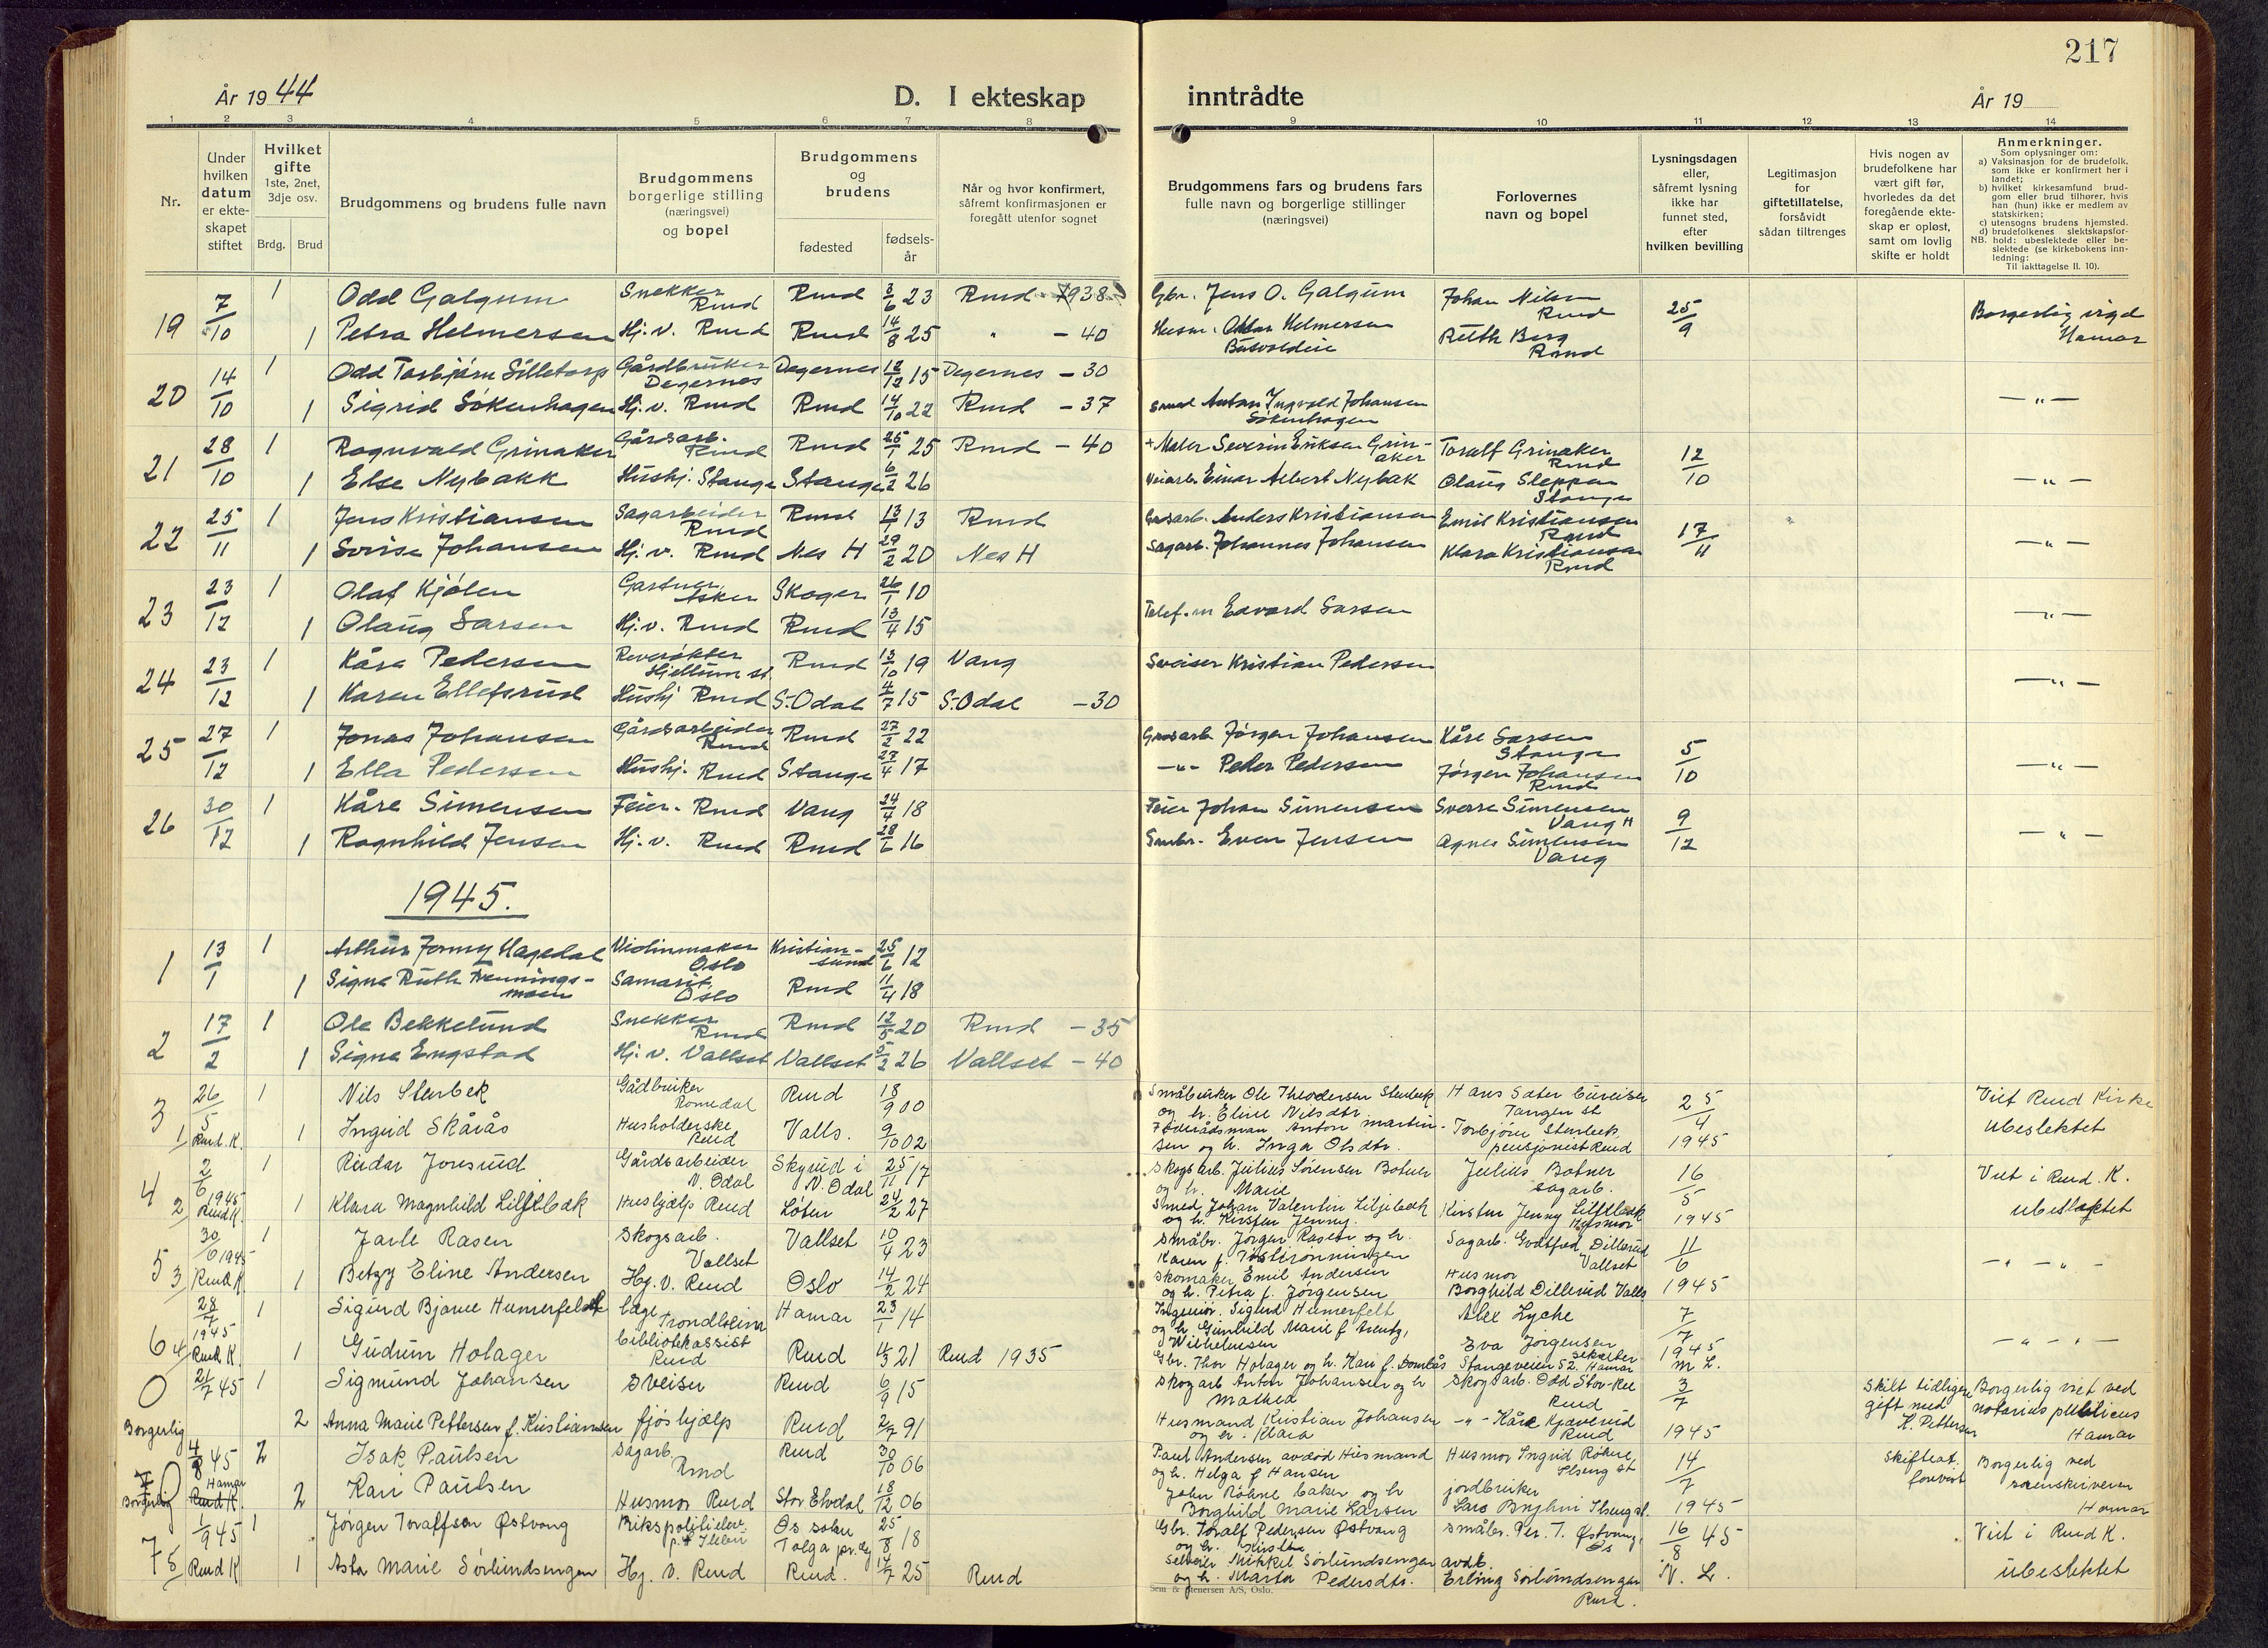 217
År 1944
D. I ekteskap
inntrådte
År 19
1 2 3 4 5 6 7 8 9 10 11 12 13 14
Nr.
Under
hvilken
datum
er ekte-
skapet
stiftet
Hvilket
gifte
1ste, 2net,
3dje osv.
Brdg. Brud
Brudgommens og brudens fulle navn
Brudgommens
borgerlige stilling
(næringsvei)
og bopel
Brudgommens
og
brudens
fødested
fødsels-
år
Når og hvor konfirmert,
såfremt konfirmasjonen er
foregått utenfor sognet
Brudgommens fars og brudens fars
fulle navn og borgerlige stillinger
(næringsvei)
Forlovernes
navn og bopel
Lysningsdagen
eller,
såfremt lysning
ikke har
funnet sted,
efter
hvilken bevilling
Legitimasjon
for
giftetillatelse,
forsåvidt
sådan tiltrenges
Hvis nogen av
brudefolkene har
vært gift før,
hvorledes da det
foregående ekte-
skap er opløst,
samt om lovlig
skifte er holdt
Anmerkninger.
Som oplysninger om:
a) Vaksinasjon for de brudefolk,
som ikke er konfirmert her i
landet;
b) hvilket kirkesamfund brud-
gom eller brud tilhører, hvis
han (hun) ikke er medlem av
statskirken;
c) utensogns brudens hjemsted.
d) brudefolkenes slektskapsfor-
NB. hold: ubeslektede eller be-
slektede (se kirkebokens inn-
ledning:
Til iakttagelse II. 10).
19 7/10 1 Odd Galgum Snekker Rmd Rmd 3/6 23 Rmd 1938 Gbr. Jens O. Galgum Johan Nilsen Rmd 25/9 Borgerlig vigd Hamar
1 Petra Helmersen Hj.v. Rmd Rmd 14/8 25 " - 40 Husm. Helmersen Ruth Berg Rmd
20 14/10 1 Odd Torbjørn Silletorp Gårdbruker Degernes Degernes 12/12 15 Degernes - 30
1 Sigrid Søkenhagen Hj.v. Rmd Rmd 14/10 22 Rmd - 37 Anton Ingvald Johansen Søkenhagen - " -
21 28/10 1 Ragnvald Grinaker Gårdsarb. Rmd Rmd 25/1 25 Rmd - 40 + Maler Severin Eriksen Grinaker Toralf Grinaker Rmd 12/10
1 Else Nybakk Hushj. Stange Stange 6/2 26 Veiarb. Einar Albert Nybak Olaug Sleppen Stange - " -
22 25/11 1 Jens Kristiansen Sagarbeider Rmd Rmd 13/1 13 Rmd Anders Kristiansen Emil Kristiansen Rmd 17/11
1 Johansen Hj.v. Rmd Nes H 29/2 20 Nes H Sagarb. Johannes Johansen Klara Kristiansen Rmd - " -
23 23/12 1 Olaf Kjølen Gartner Asker Skoger 26/1 10
1 Olaug Larsen Hj.v. Rmd Rmd 13/4 15 Telef.m Edvard Larsen - " -
24 23/12 1 Kåre Pedersen Revrøkter Hjellum st. Rmd 13/10 19 Vang Sveiser Kristian Pedersen
1 Karen Ellefsrud Hushj Rmd S-Odal 4/7 15 S-Odal - 30 - " -
25 27/12 1 Jonas Johansen Gårdsarbeider Rmd Rmd 27/2 22 Jørgen Johansen Kåre Larsen Stange 5/10
1 Ella Pedersen Hushj. Rmd Stange 27/4 17 - " - Peder Pedersen Jørgen Johansen Rmd - " -
26 30/12 1 Kåre Simensen Feier. Rmd Vang 24/4 18 Feier Johan Simensen Sverre Simensen Vang H 9/12
1 Ragnhild Jensen Hj.v. Rmd Rmd 28/6 16 Smbr. Even Jensen Agnes Simensen Vang - " -
1945.
1 13/1 1 Arthur Jonny Hagedal Violinmaker Oslo Kristiansund 25/6 12
1 Signe Ruth Henningsmoen Samarit. Oslo Rmd 11/4 18
2 17/2 1 Ole Bekkelund Snekker Rmd Rmd 12/5 20 Rmd - 35
1 Signe Engstad Hj.v. Vallset Vallset 5/2 26 Vallset - 40
3 26/5 1 Nils Stenbek Gådbruker Romedal Rmd 18/9 00 Småbruker Ole Theodersen Stenbek og h. Eline Nilsdtr. Hans Sater Tangen st 25/4 1945 Viet Rmd Kirke
1 Rmd.K. 1 Ingrid Skårås Husholderske Rmd Valls. 9/10 02 Føderådsman Anton Martinsen og h. Inga Olsdtr. Torbjørn Stenbeck pensjonist Rmd ubeslektet
4 2/6 1945 1 Reidar Jonsrud Gårdsarbeider N. Odal Skyrud i N. Odal 25/11 17 Skogsarb. Julius Sørensen Botner og h. Marie Julius Botner sagarb. 16/5 1945 Viet i Rmd. K.
2 Rmd K. 1 Klara Magnhild Liljebak Hushjelp Rmd Løten 24/2 27 Smed Johan Valentin Liljebak og h. Kirsten Jenny. Kirsten Jenny Liljebæk Husmor ubeslektet
5 30/6 1945 1 Jarle Rasen Skogsarb. Vallset Vallset 10/4 23 Småbr. Jørgen Rasen og h. Karen f. Sagarb. Godtfred Dillerud Vallset 11/6 1945
3 Rmd K. 1 Betzy Eline Andersen Hj.V. Rmd Oslo 14/2 24 Skomaker Emil Andersen og h. Petra f. Jørgensen Husmor Borghild Dillerud Valls - " - " -
6 28/7 1945 1 Sigurd Bjarne Humerfelt læge Trondheim Hamar 23/1 14 Ingeniør. Sigurd Humerfelt og h. Gunhild Marie f. Wilhelmsen Alex Lycke 7/7 1945 M L.
4 Rmd K. 1 Gudrun Holager bibliotekassist Rmd Rmd 11/3 21 Rmd 1935 Gbr. Thor Holager og h. Kari f. Dombås Eva Jørgensen Stangeveien 52. Hamar - " - " -
0 21/7 45 1 Sigmund Johansen Sveiser Rmd 6/9 15 Skogarb Anton Johansen og h Mathea Skogsarb. Odd Stor-Ree Rmd 3/7 1945 Skilt tidligere gift med K. Pettersen Borgerlig viet ved notarius publicus Hamar
Borgerlig 2 Anna Marie Pettersen f. Kristiansen fjøshjelp Rmd 2/7 91 Husmand Kristian Johansen og h. Klara - " - Kåre Kjæverud Rmd
0 4/8 45 2 Isak Paulsen Sagarb. Rmd Rmd 30/10 06 Paul Andersen avdød Husmand og h. Helga f Hansen Husmor Ingrid Røhne Ilseng st 14/7 1945 Skifteat. forevist Borgerlig ved sorenskriveren Hamar
Borgerlig Hamar 2 Kari Paulsen Husmor Rmd Stor Elvdal 18/12 06 John Røhne baker og h Borghild Marie Larsen jordbruker Lars Bryhni Ilseng st.
7 1/9 45 1 Jørgen Toralfsen Østvang Rikspolitielev Os sokn Tolga pr.gj 25/8 18 Gbr. Toralf Pedersen Østvang og h. Småbr. Per. T. Østvang, Os 16/8 45 N. L. Viet i Rmd K.
5 Rmd K 1 Asta Marie Sørlundsengen Hj. V. Rmd Rmd. 14/7 25 Rmd Selveier Mikkel Sørlundsengen og h. Marta Pedersdtr. avdk. Erling Sørlundsengen Rmd. ubeslektet
Sem & Stenersen A/S, Oslo.